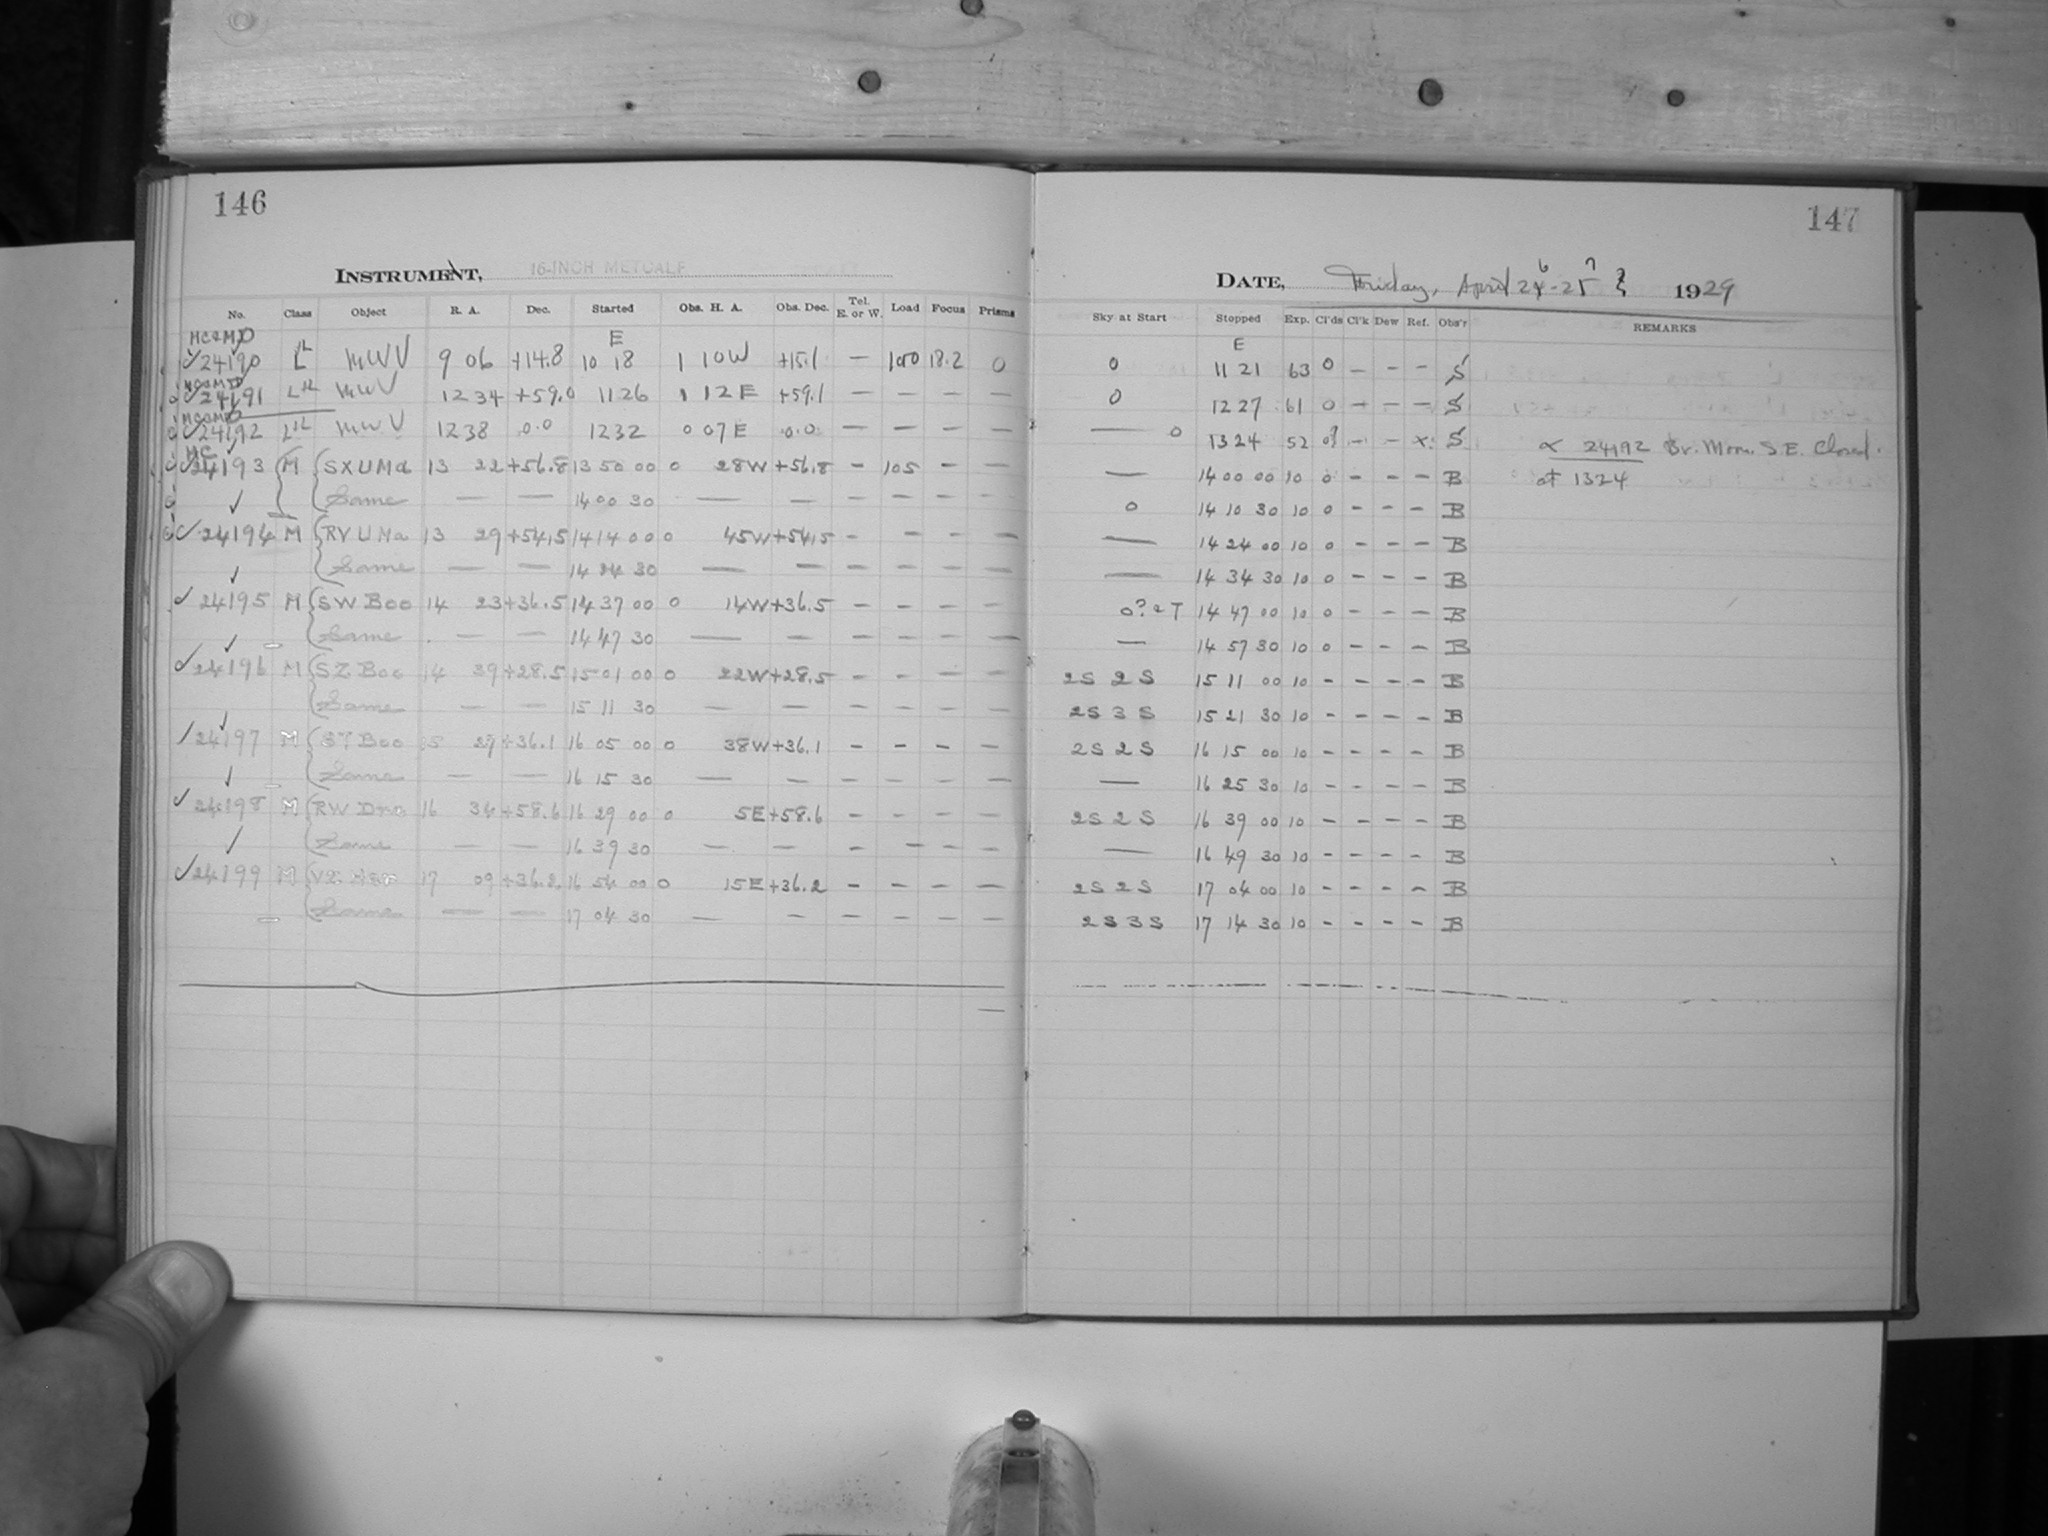 146
INSTRUMENT, 16-INCH METCALF
No. Class Object R. A. Dec. Started Obs. H. A. Obs. Dec. Tel. E. or W. Load Focus Prisms
MC&MD E
24190 L MWV 9 06 +14.8 10 18 1 10W +15.1 — 100 18.2 0
24191 MWV 12 34 +59.0 11 26 1 12E +59.1 — — — —
24192 MWV 12 38 0.0 12 32 0 07E 0.0 — — — —
MC
24193 M SXUMa 13 22 +56.8 13 50 00 0 28W +56.8 - 105 — —
Same — — 14 00 30 — — — — — —
24194 M RVUMa 13 29 +54.5 14 14 00 0 45W +54.5 - — — —
Same — — 14 24 30 — — — — — —
24195 M SW Boo 14 23 +36.5 14 37 00 0 14W +36.5 - - - —
Same — — 14 47 30 — — — — — —
24196 M SZ Boo 14 39 +28.5 15 01 00 0 22W +28.5 - - - —
Same — — 15 11 30 — — — — — —
24197 M ST Boo 15 27 +36.1 16 05 00 0 38W +36.1 - - - —
Same — — 16 15 30 — — — — — —
24198 M RW Dra 16 34 +58.6 16 29 00 0 5E +58.6 - - - —
Same — — 16 39 30 — — - — — —
24199 M VZ Her 17 09 +36.2 16 54 00 0 15E +36.2 - - - —
Same — — 17 04 30 — — — — — —
147
DATE, Friday, April 26-27 1929
Sky at Start Stopped Exp. Cl'ds Cl'k Dew Ref. Obs'r REMARKS
E
0 11 21 63 0 - - - S
0 12 27 61 0 - - - S
— 0 13 24 52 0? - - x S x 24192 Br. Moon. S.E. Closed.
— 14 00 00 10 0 - - - B at 1324
0 14 10 30 10 0 - - - B
— 14 24 00 10 0 - - - B
— 14 34 30 10 0 - - - B
0? 2 T 14 47 00 10 0 - - - B
— 14 57 30 10 0 - - - B
2S 2S 15 11 00 10 - - - - B
2S 3S 15 21 30 10 - - - - B
2S 2S 16 15 00 10 - - - - B
— 16 25 30 10 - - - - B
2S 2S 16 39 00 10 - - - - B
— 16 49 30 10 - - - - B
2S 2S 17 04 00 10 - - - - B
2S 3S 17 14 30 10 - - - - B